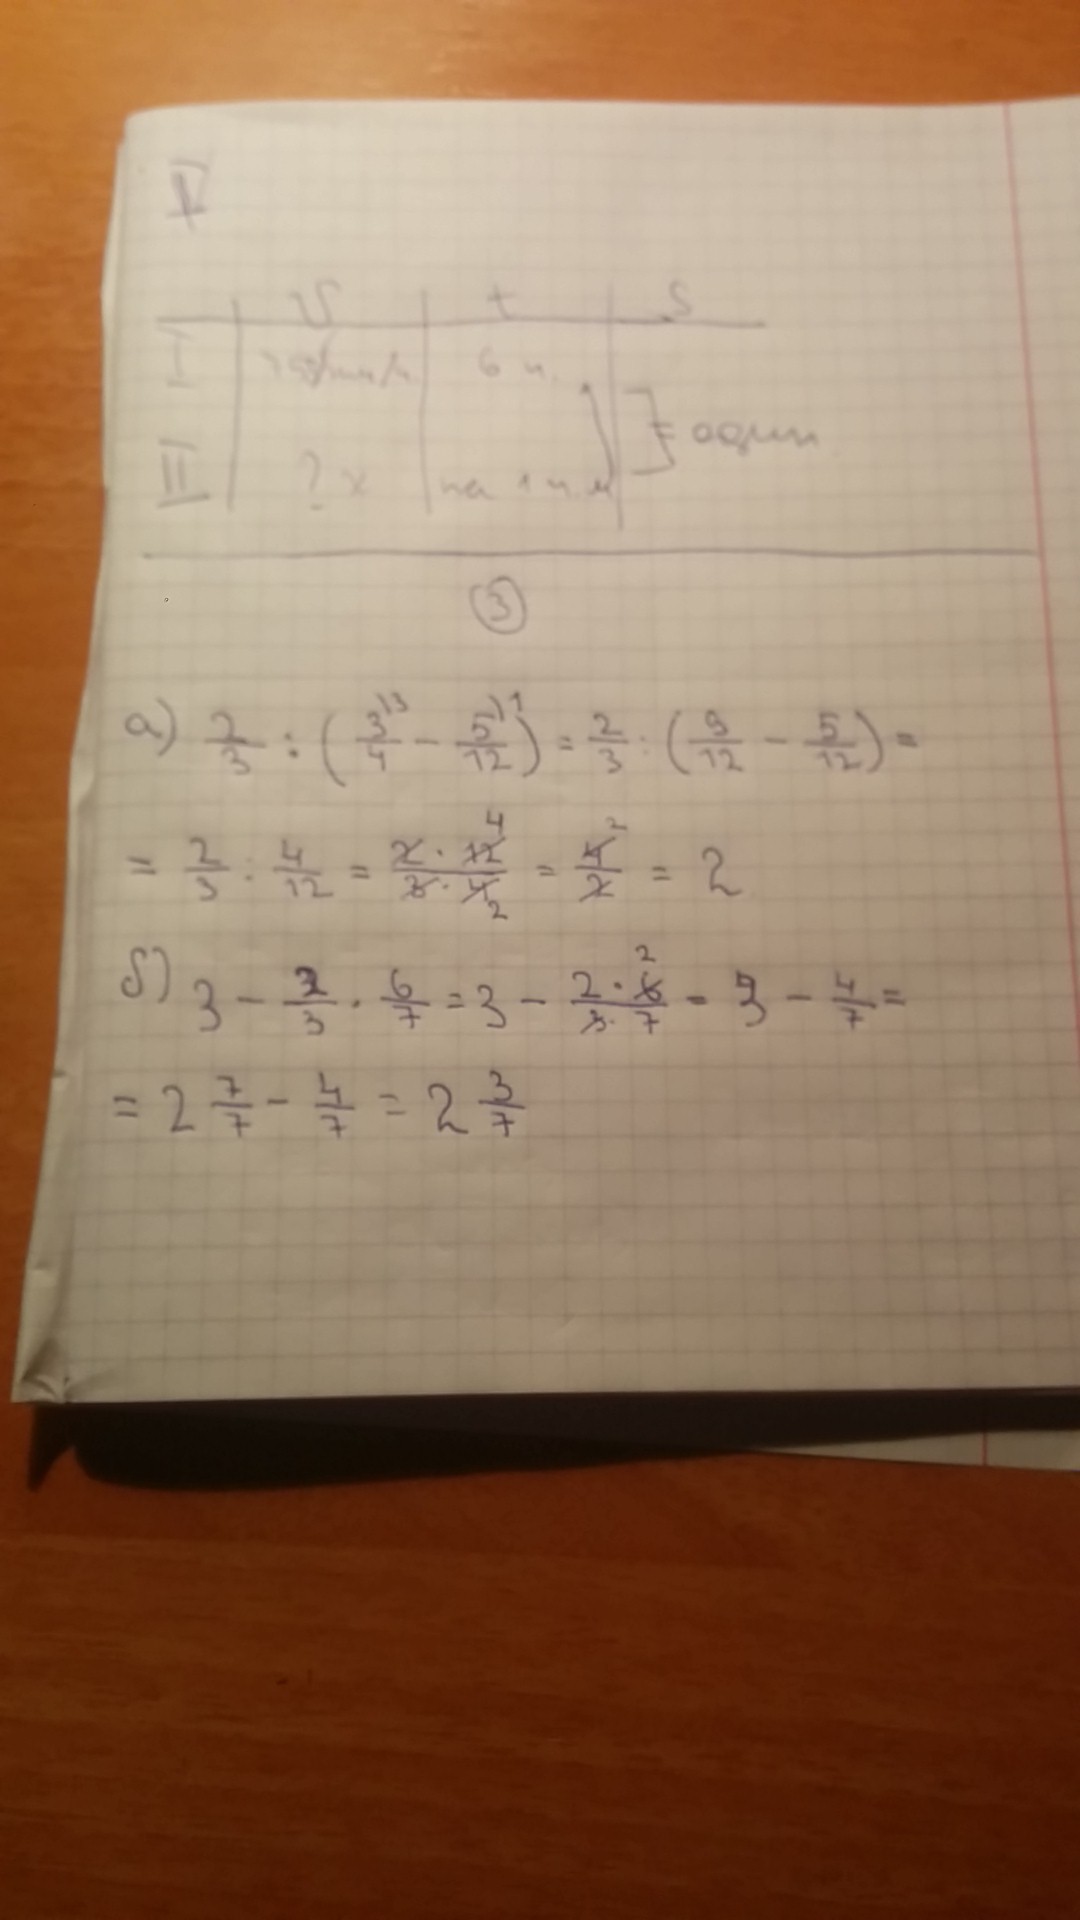 V
V t S
I 6 ч.
II ? x на 1 ч. м } = один
③
а) 2/3 : (3/4 ⁾³ - 5/12 ⁾¹) = 2/3 : (9/12 - 5/12) =
= 2/3 : 4/12 = 2 · 12 4 / 3 · 4 2 = 4 2 / 2 = 2
б) 3 - 2/3 · 6/7 = 3 - 2 · 6 2 / 3 · 7 = 3 - 4/7 =
= 2 7/7 - 4/7 = 2 3/7